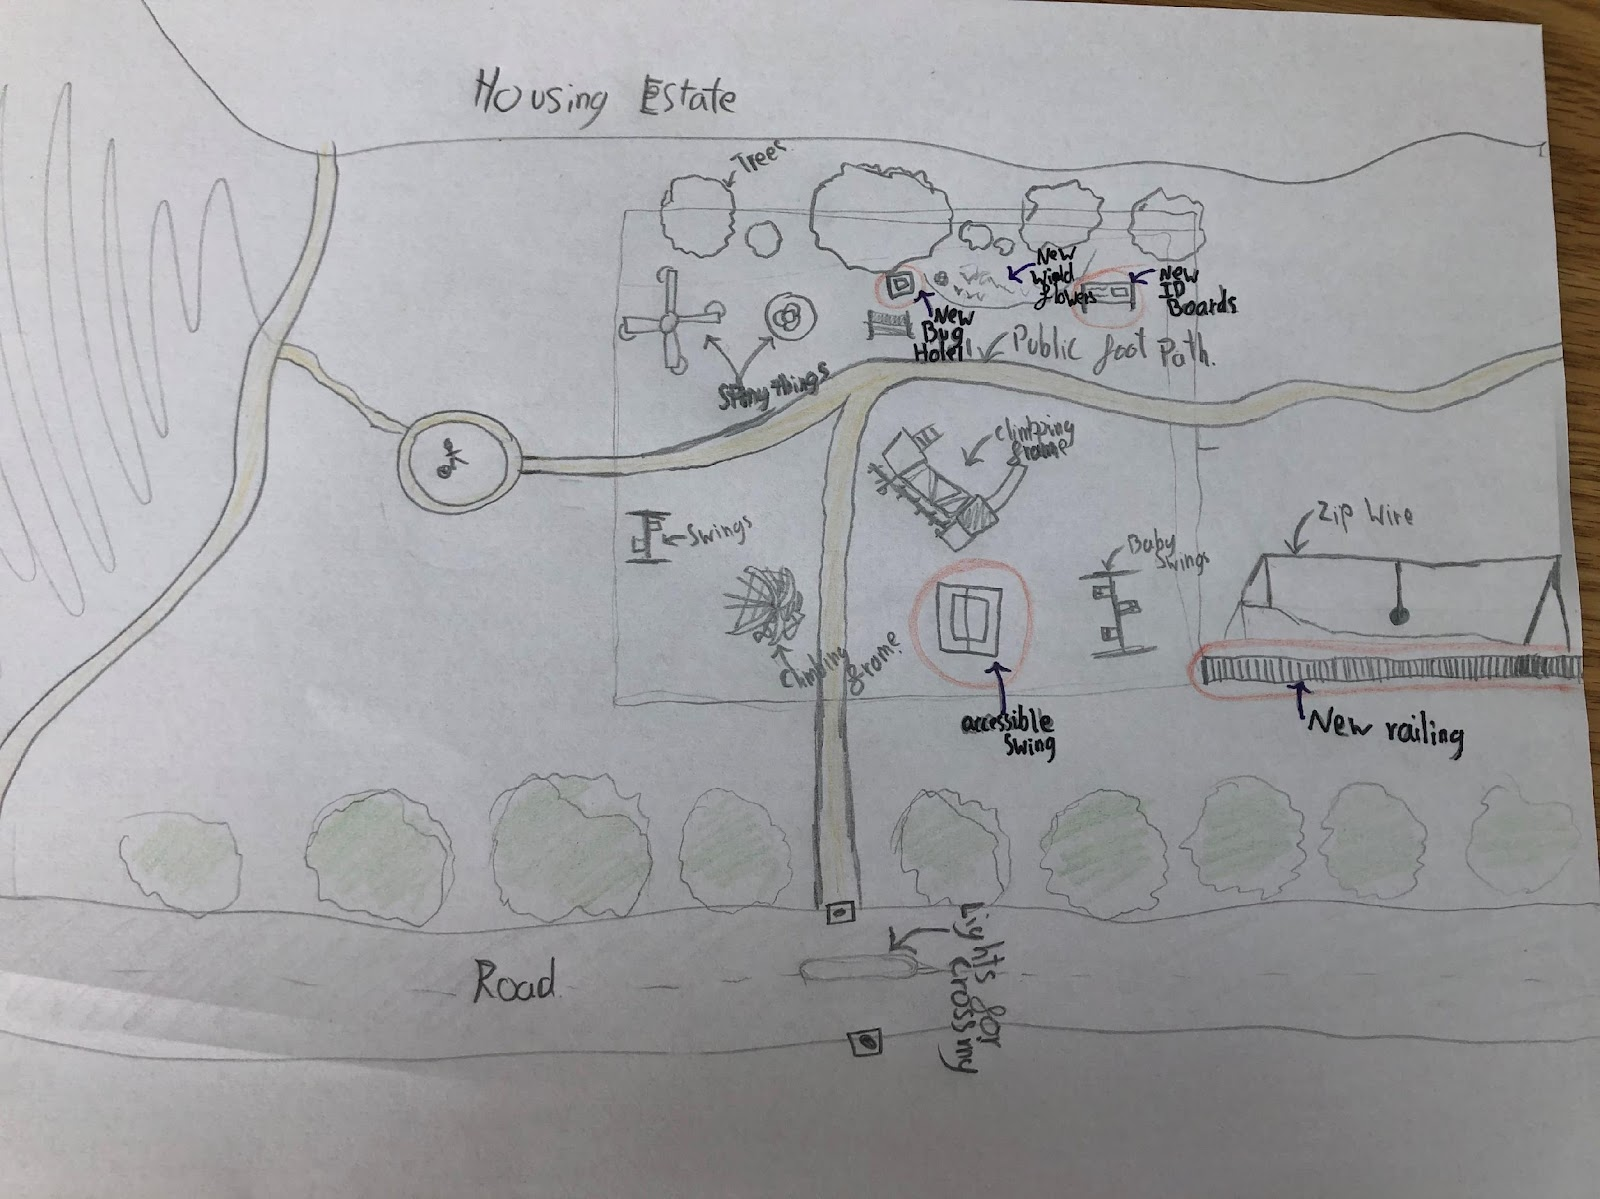 Housing Estate
Trees
New
Wild
flowers
New
ID
Boards
New
Bug
Hotel
Public foot Path.
Spiny things
Climbing
frame
Zip Wire
Swings
Baby
Swings
Climbing
frame
accessible
Swing
New railing
Road
Lights for
Crossing